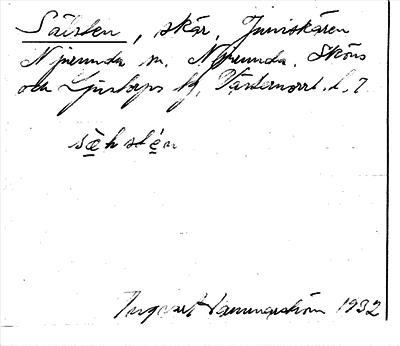 Sälsten, skär, Juniskären
Njurunda sn. Njurunda, Sköns
och Ljustorps tg, Västernorrl. l.
sæ̀hsté̱n
Ingvart Hammarström 1932